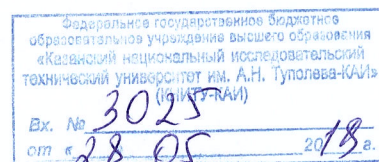 Федеральное государственное бюджетное
образовательное учреждение высшего образования
«Казанский национальный исследовательский
технический университет им. А.Н. Туполева-КАИ»
(КНИТУ-КАИ)
Вх. № 3025
от «28 05 2018 г.